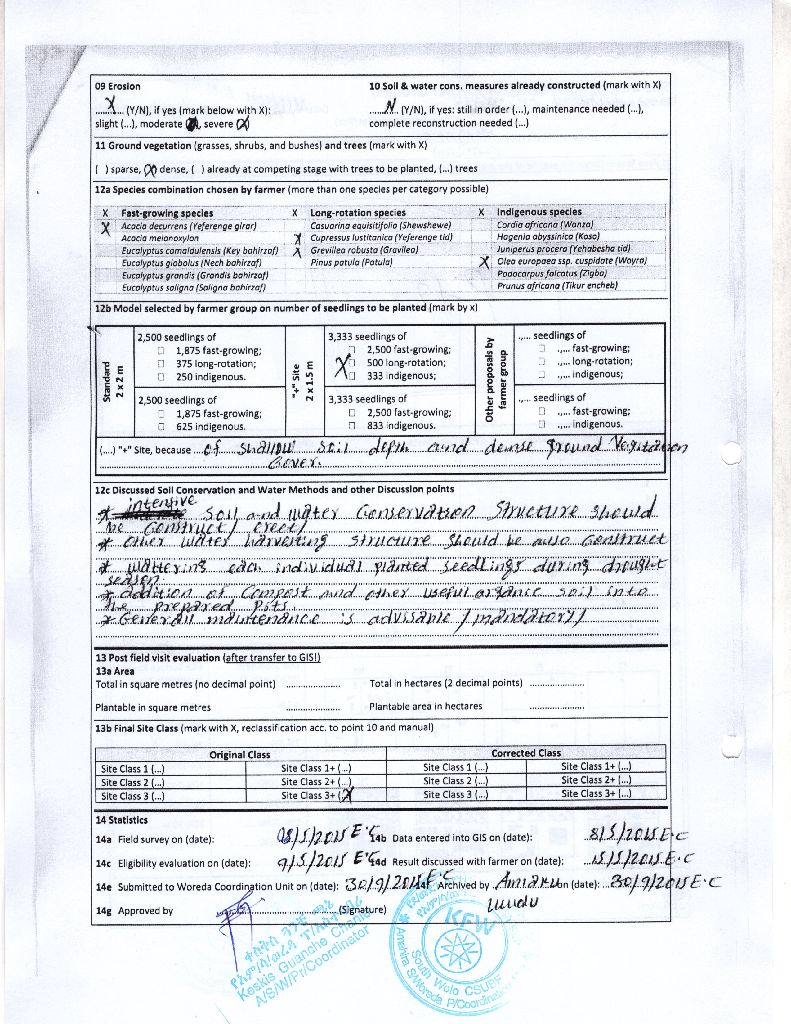 09 Erosion
10 Soil & water cons. measures already constructed (mark with X)
...X... (Y/N), if yes (mark below with X):
slight (...), moderate, severe (X)
...N.. (Y/N), if yes: still in order (...), maintenance needed (...),
complete reconstruction needed (...)
11 Ground vegetation (grasses, shrubs, and bushes) and trees (mark with X)
( ) sparse, (X) dense, ( ) already at competing stage with trees to be planted, (...) trees
12a Species combination chosen by farmer (more than one species per category possible)
X Fast-growing species
X Acacia decurrens (Yeferenge girar)
Acacia melanoxylon
Eucalyptus camalaulensis (Key bahirzaf)
Eucalyptus globolus (Nech bahirzaf)
Eucalyptus grandis (Grandis bahirzaf)
Eucalyptus saligna (Saligna bahirzaf)
X Long-rotation species
Casuarina equisitifolia (Shewshewe)
X Cupressus lustitanica (Yeferenge tid)
X Grevillea robusta (Gravilea)
Pinus patula (Patula)
X Indigenous species
Cordia africana (Wanza)
Hagenia abyssinica (Koso)
Juniperus procera (Yehabesha tid)
X Olea europaea ssp. cuspidate (Woyra)
Podocarpus falcatus (Zigba)
Prunus africana (Tikur encheb)
12b Model selected by farmer group on number of seedlings to be planted (mark by x)
Standard
2 x 2 m
2,500 seedlings of
1,875 fast-growing;
375 long-rotation;
250 indigenous.
2,500 seedlings of
1,875 fast-growing;
625 indigenous.
"+" Site
2 x 1.5 m
3,333 seedlings of
2,500 fast-growing;
X 500 long-rotation;
333 indigenous;
3,333 seedlings of
2,500 fast-growing;
833 indigenous.
Other proposals by
farmer group
.,... seedlings of
.,... fast-growing;
.,... long-rotation;
.,... indigenous;
.,... seedlings of
.,... fast-growing;
.,... indigenous.
(....) "+" Site, because of shallow soil depth and dense ground vegetation
cover.
12c Discussed Soil Conservation and Water Methods and other Discussion points
* intensive soil and water conservation structure should
be construct / erect/
* other water harvesting structure should be also construct
* wattering each individual planted seedlings during drought
season.
* addition of compost and other useful organic soil into
the prepared pits.
* Generall maintenance is advisable / mandatory/
13 Post field visit evaluation (after transfer to GIS!)
13a Area
Total in square metres (no decimal point) ..................
Total in hectares (2 decimal points) ..................
Plantable in square metres ..................
Plantable area in hectares ..................
13b Final Site Class (mark with X, reclassification acc. to point 10 and manual)
Original Class
Corrected Class
Site Class 1 (...) Site Class 1+ (...) Site Class 1 (...) Site Class 1+ (...)
Site Class 2 (...) Site Class 2+ (...) Site Class 2 (...) Site Class 2+ (...)
Site Class 3 (...) Site Class 3+ (X) Site Class 3 (...) Site Class 3+ (...)
14 Statistics
14a Field survey on (date): /5/2015 E.C
14b Data entered into GIS on (date): 8/5/2015 E.C
14c Eligibility evaluation on (date): 9/5/2015 E.C
14d Result discussed with farmer on (date): 15/5/2015 E.C
14e Submitted to Woreda Coordination Unit on (date): 30/9/2015 E.C
14f Archived by on (date): 30/9/2015 E.C
14g Approved by (Signature)
Keskis Guanche Chane
A/S/W/Pr/Coordinator
KFW
South Wolo CSUBF
Amahra S/Woreda P/Coordination